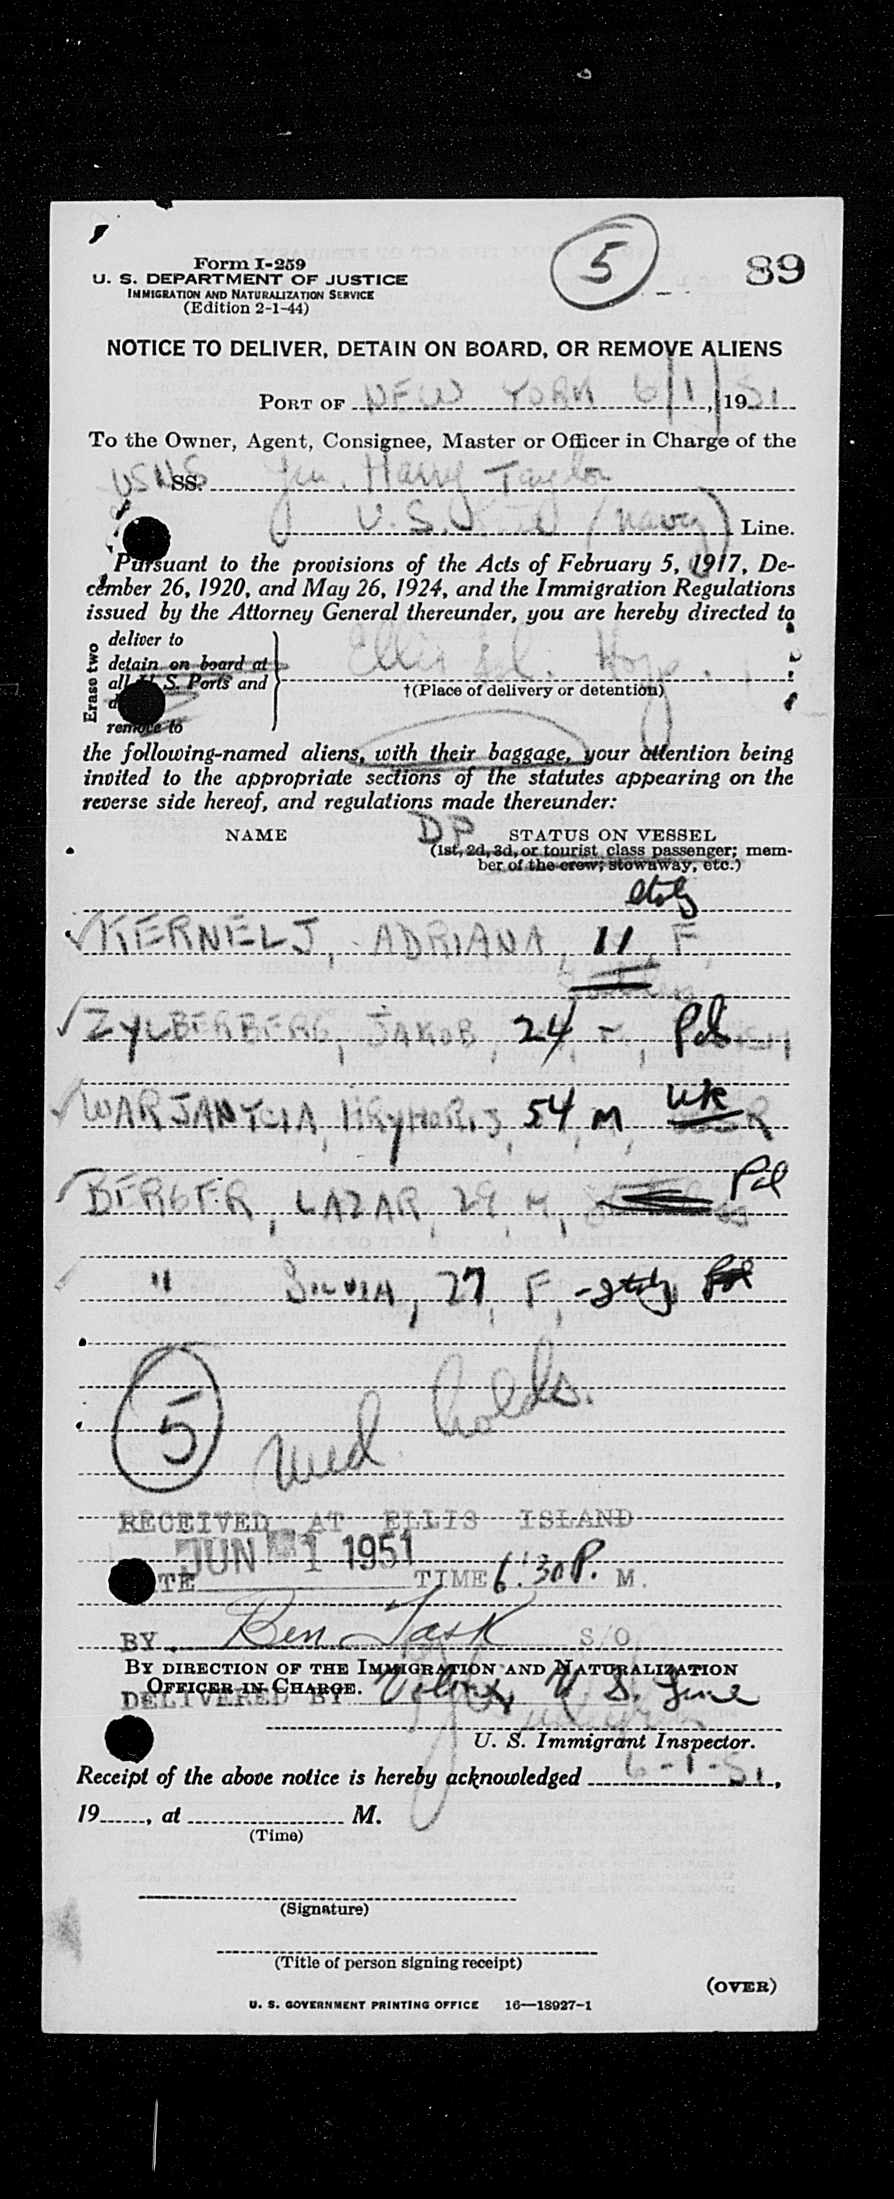 5
89
Form I-259
U. S. DEPARTMENT OF JUSTICE
IMMIGRATION AND NATURALIZATION SERVICE
(Edition 2-1-44)
NOTICE TO DELIVER, DETAIN ON BOARD, OR REMOVE ALIENS
PORT OF NEW YORK 6/1/, 1951
To the Owner, Agent, Consignee, Master or Officer in Charge of the
USNS SS. Gen. Harry Taylor
U.S. (Navy) Line.
Pursuant to the provisions of the Acts of February 5, 1917, De-
cember 26, 1920, and May 26, 1924, and the Immigration Regulations
issued by the Attorney General thereunder, you are hereby directed to
Erase two
deliver to
detain on board at
all U. S. Ports and
remove to
Ellis Isl. Hosp.
†(Place of delivery or detention)
the following-named aliens, with their baggage, your attention being
invited to the appropriate sections of the statutes appearing on the
reverse side hereof, and regulations made thereunder:
NAME DP STATUS ON VESSEL
(1st, 2d, 3d, or tourist class passenger; mem-
ber of the crew; stowaway, etc.)
KERNELJ, ADRIANA, 11, F,
ZYLBERBERG, JAKOB, 24, M, Pol
WARJANYCIA, HRYHORIJ, 54, M, Uk
BERGER, LAZAR, 29, M, Pol
" SILVIA, 27, F,
5 Med. holds.
RECEIVED AT ELLIS ISLAND
JUN 1 1951
TIME 6:30 P. M.
BY Ben Task S/O
BY DIRECTION OF THE IMMIGRATION AND NATURALIZATION
OFFICER IN CHARGE.
DELIVERED BY U S. Line
U. S. Immigrant Inspector.
Receipt of the above notice is hereby acknowledged 6-1-51,
19......, at .................... M.
(Time)
(Signature)
(Title of person signing receipt)
(OVER)
U. S. GOVERNMENT PRINTING OFFICE 16—18927-1